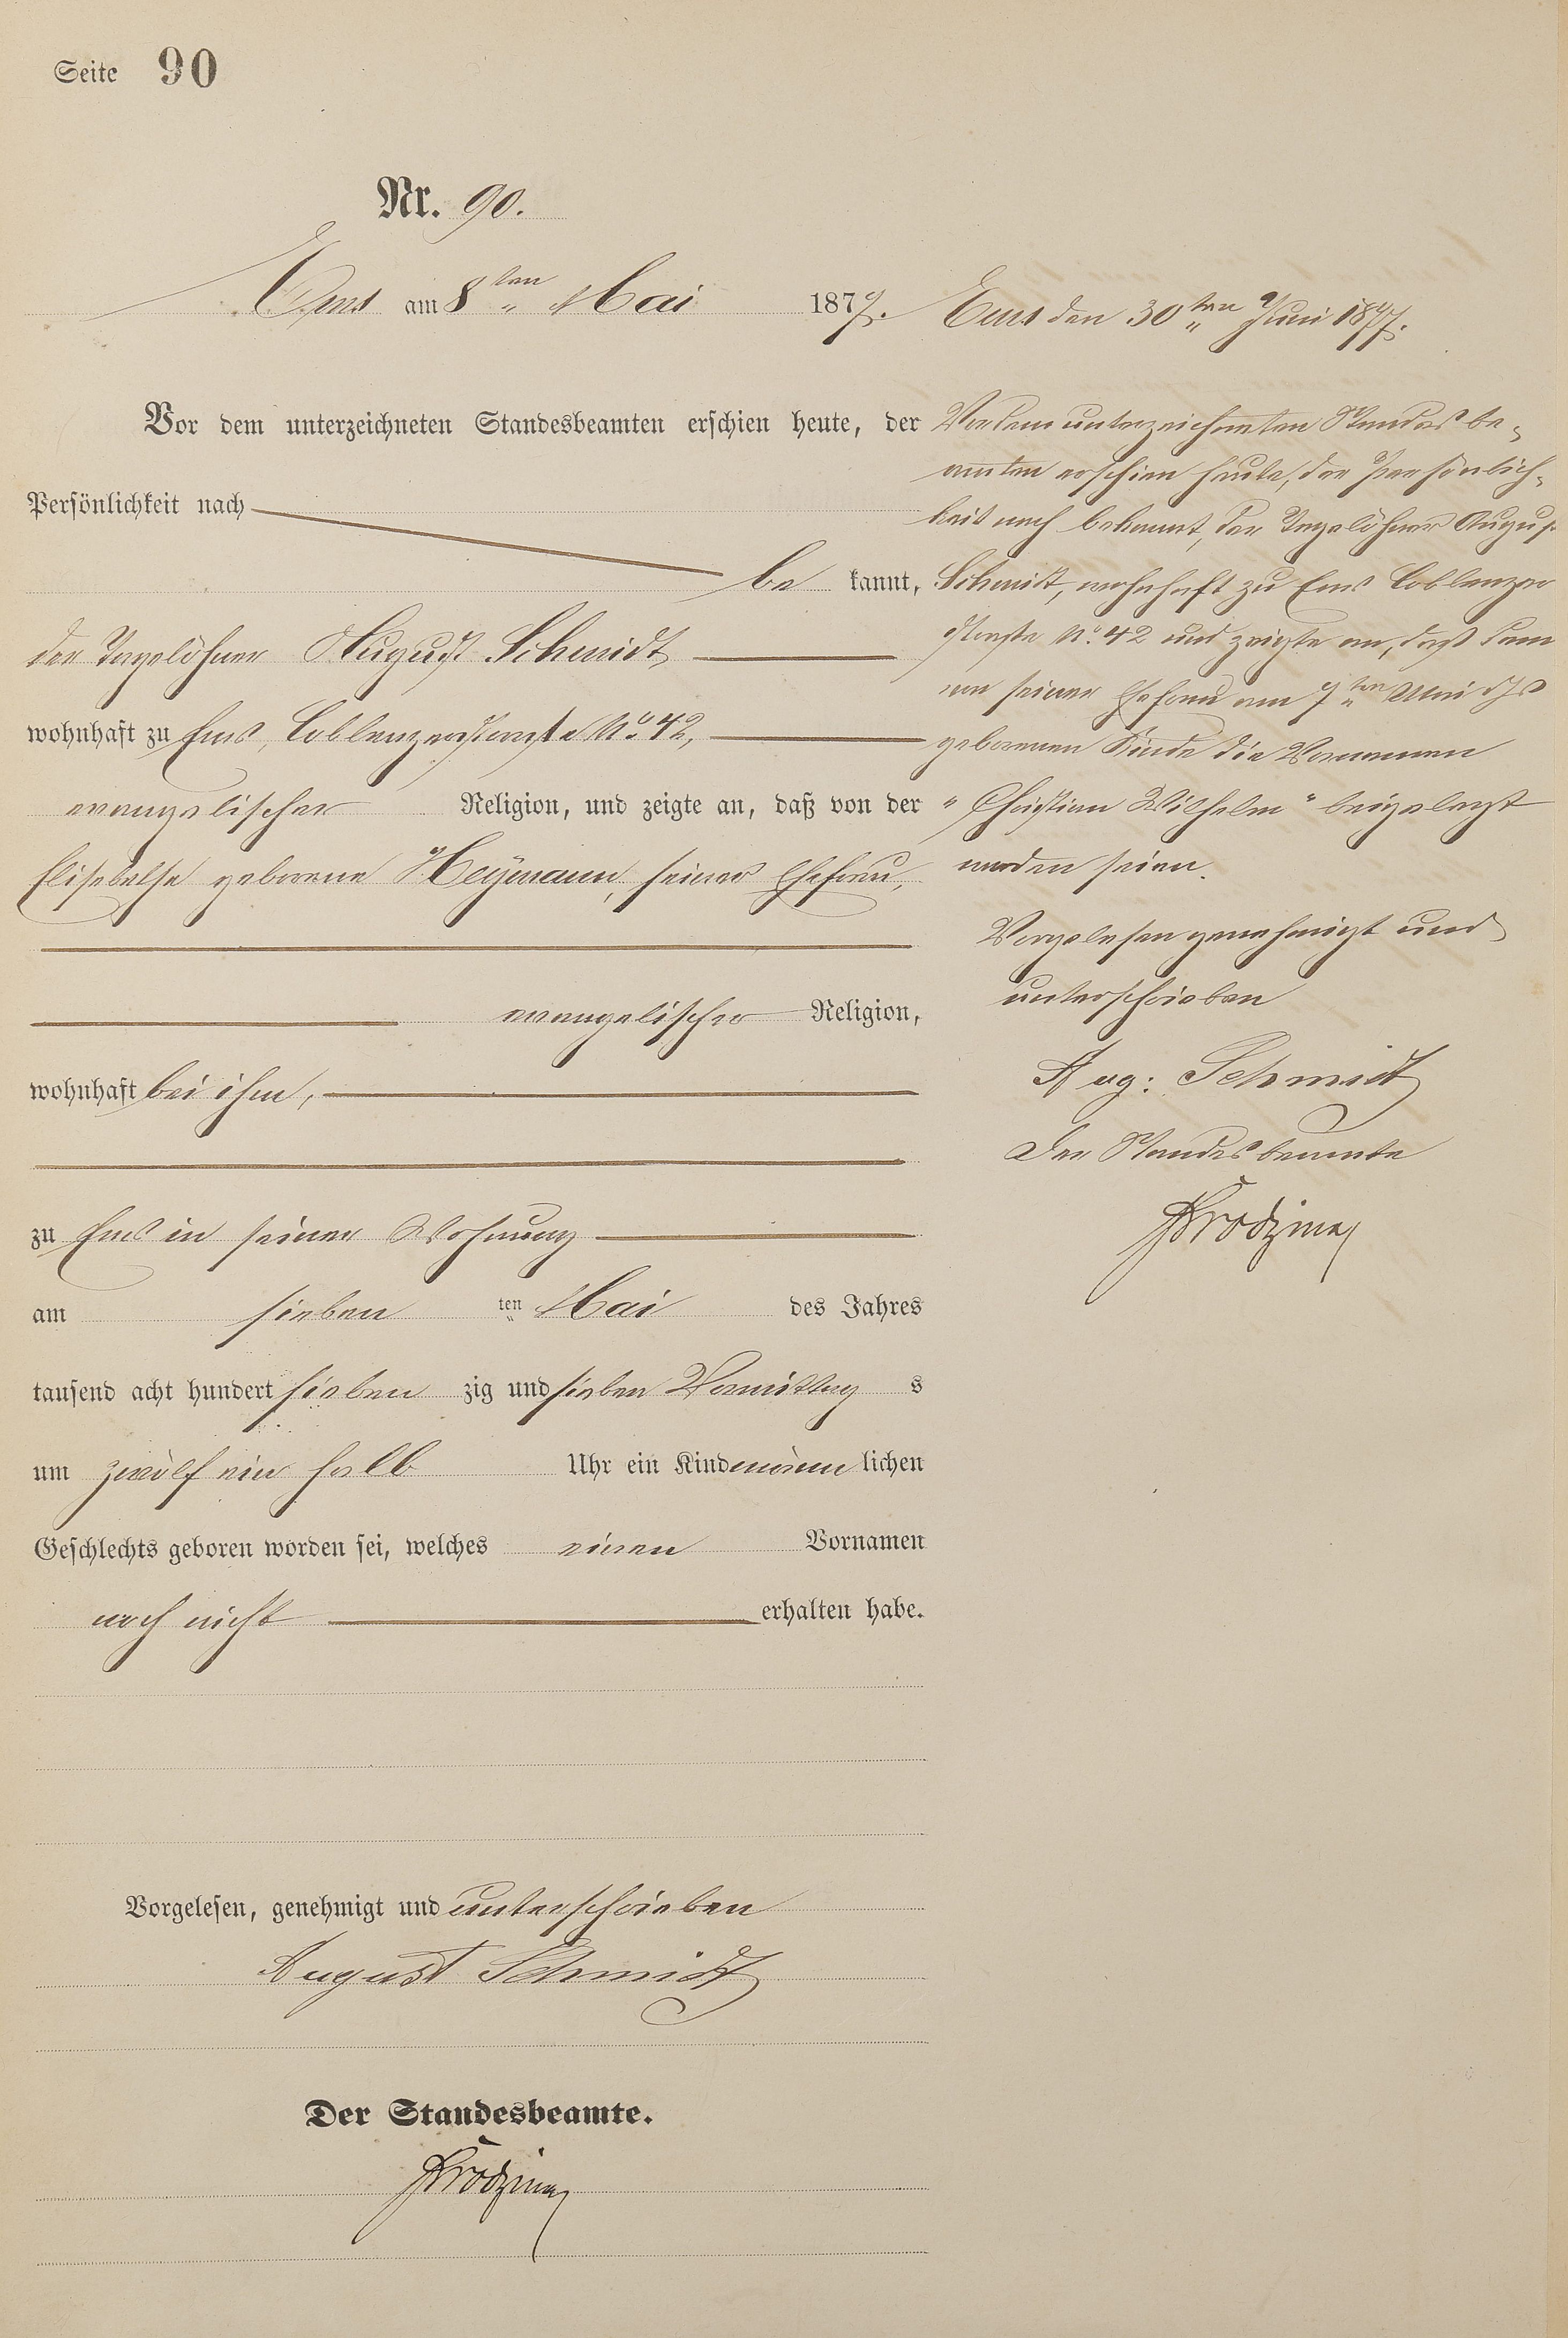 Seite 90
Nr. 90.
Ems am 8ten Mai 1877.
Vor dem unterzeichneten Standesbeamten erschien heute, der
Persönlichkeit nach
be kannt,
der Tagelöhner August Schmidt
wohnhaft zu Ems, Coblenzerstraße No. 42,
evangelischer Religion, und zeigte an, daß von der
Elisabethe geborene Heymann, seiner Ehefrau,
evangelischer Religion,
wohnhaft bei ihm,
zu Ems in seiner Wohnung
am sieben ten Mai des Jahres
tausend acht hundert sieben zig und sieben Vormittag s
um zwölf ein halb Uhr ein Kind männ lichen
Geschlechts geboren worden sei, welches einen Vornamen
noch nicht erhalten habe.
Vorgelesen, genehmigt und unterschrieben
August Schmidt
Der Standesbeamte.
Ems den 30ten Juni 1877.
Vor dem unterzeichneten Standesbe-
amten erschien heute, der Persönlich-
keit nach bekannt, der Tagelöhner August
Schmidt, wohnhaft zu Ems Coblenzer
straße No. 42 und zeigte an, daß dem
von seiner Ehefrau am 7ten Mai d Js
geborenen Kinde die Vornamen
"Christian Wilhelm" beigelegt
worden seien.
Vorgelesen genehmigt und
unterschrieben
Aug: Schmidt
Der Standesbeamte